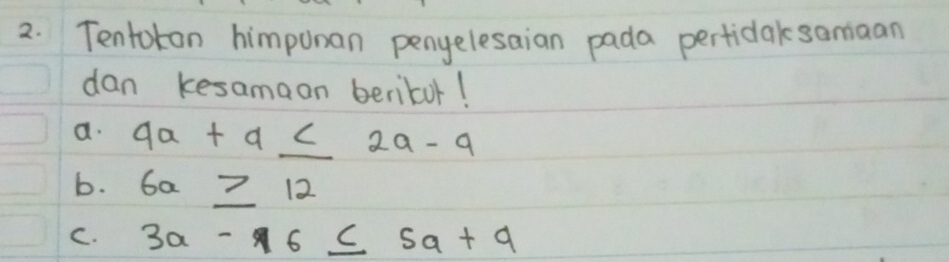 2. Tentukan himpunan penyelesaian pada pertidaksamaan
dan kesamaan berikut!
a. 9a + 9 ≤ 2a - 9
b. 6a ≥ 12
c. 3a - 6 ≤ 5a + 9